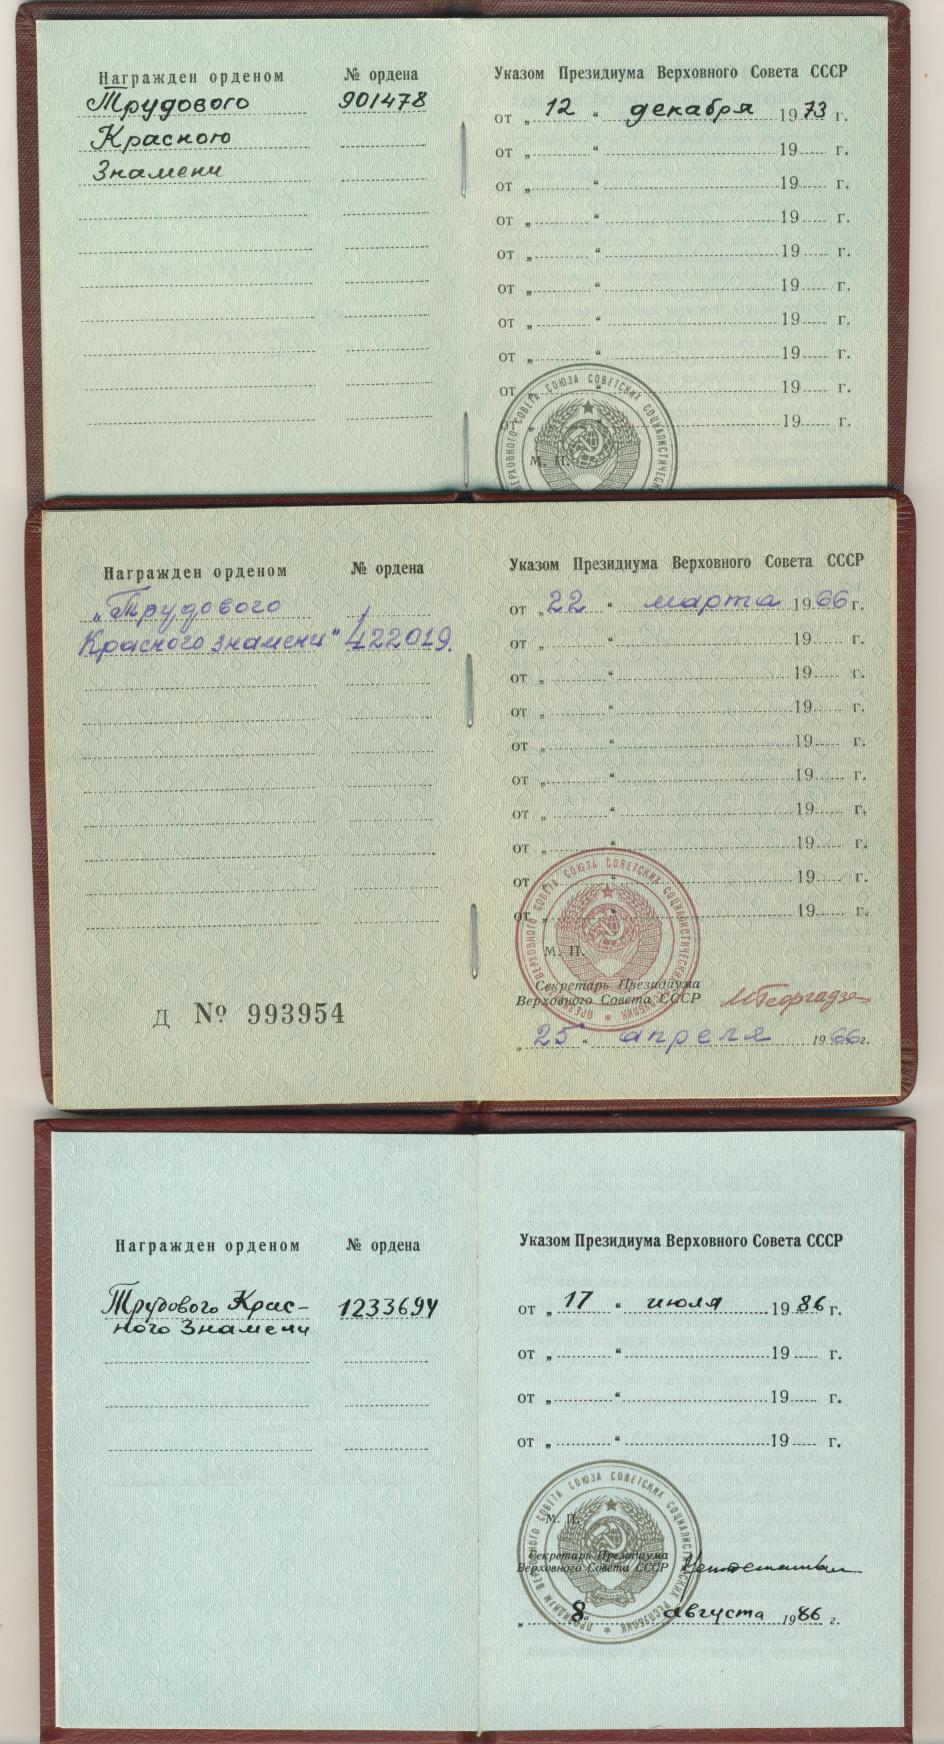 Награжден орденом № ордена
Трудового 901478
Красного
Знамени
Указом Президиума Верховного Совета СССР
от „ 12 “ декабря 1973 г.
от „ “ 19 г.
от „ “ 19 г.
от „ “ 19 г.
от „ “ 19 г.
от „ “ 19 г.
от „ “ 19 г.
от „ “ 19 г.
от „ “ 19 г.
от „ “ 19 г.
М. П.
ВЕРХОВНОГО СОВЕТА СОЮЗА СОВЕТСКИХ СОЦИАЛИСТИЧЕСКИ
Награжден орденом № ордена
„Трудового
Красного знамени“ 422019.
Д № 993954
Указом Президиума Верховного Совета СССР
от „ 22 “ марта 1966 г.
от „ “ 19 г.
от „ “ 19 г.
от „ “ 19 г.
от „ “ 19 г.
от „ “ 19 г.
от „ “ 19 г.
от „ “ 19 г.
от „ “ 19 г.
от „ “ 19 г.
М. П.
ПРЕЗИДИУМ ВЕРХОВНОГО СОВЕТА СОЮЗА СОВЕТСКИХ СОЦИАЛИСТИЧЕСКИХ РЕСПУБЛИК
Секретарь Президиума
Верховного Совета СССР МГеоргадзе
„ 25 “ апреля 1966 г.
Награжден орденом № ордена
Трудового Крас- 1233694
ного Знамени
Указом Президиума Верховного Совета СССР
от „ 17 “ июля 1986 г.
от „ “ 19 г.
от „ “ 19 г.
от „ “ 19 г.
М. П.
ПРЕЗИДИУМ ВЕРХОВНОГО СОВЕТА СОЮЗА СОВЕТСКИХ СОЦИАЛИСТИЧЕСКИХ РЕСПУБЛИК
Секретарь Президиума
Верховного Совета СССР
„ 8 “ августа 1986 г.